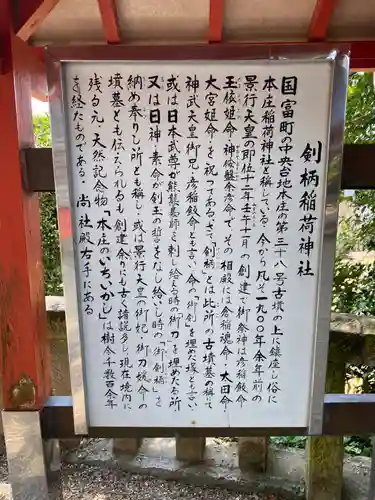 剣柄稲荷神社
国富町の中央台地本庄の第三十八号古墳の上に鎮座し俗に
本庄稲荷神社と称している。今から凡そ一九〇〇年余年前の
景行天皇の即位十二年壬午十一月の創建で御祭神は彦稲
玉依姫命、神倭磐余彦命で、その相殿には倉稲魂命・太田命・
大宮姫命を祝ってある。さて「剣柄」とは此所の古墳墓の称で
神武天皇御兄彦稲命とも言い、命の「御剣」を埋めた塚とも言い
或は日本武尊が熊襲梟師を刺し給える時の御刀を埋めたる所
又は日神・素命が剣玉の誓をなし給いし時の「御剣柄」を
納め奉りし所とも称し或は景行天皇の御妃・御刀媛命の
墳墓とも伝えられるも創建余りにも古く諸説多し、現在境内に
残る元・天然記念物「本庄のいちいかし」は樹令千数百余年
を終えたものである。尚社殿右手にある